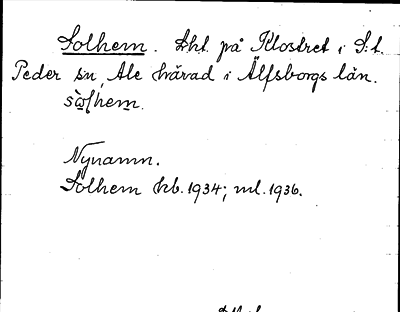 Solhem. Lht. på Klostret i S:t
Peder sn, Ale härad i Älfsborgs län.
sòlhem.
Nynamn.
Solhem kb. 1934; ml. 1936.